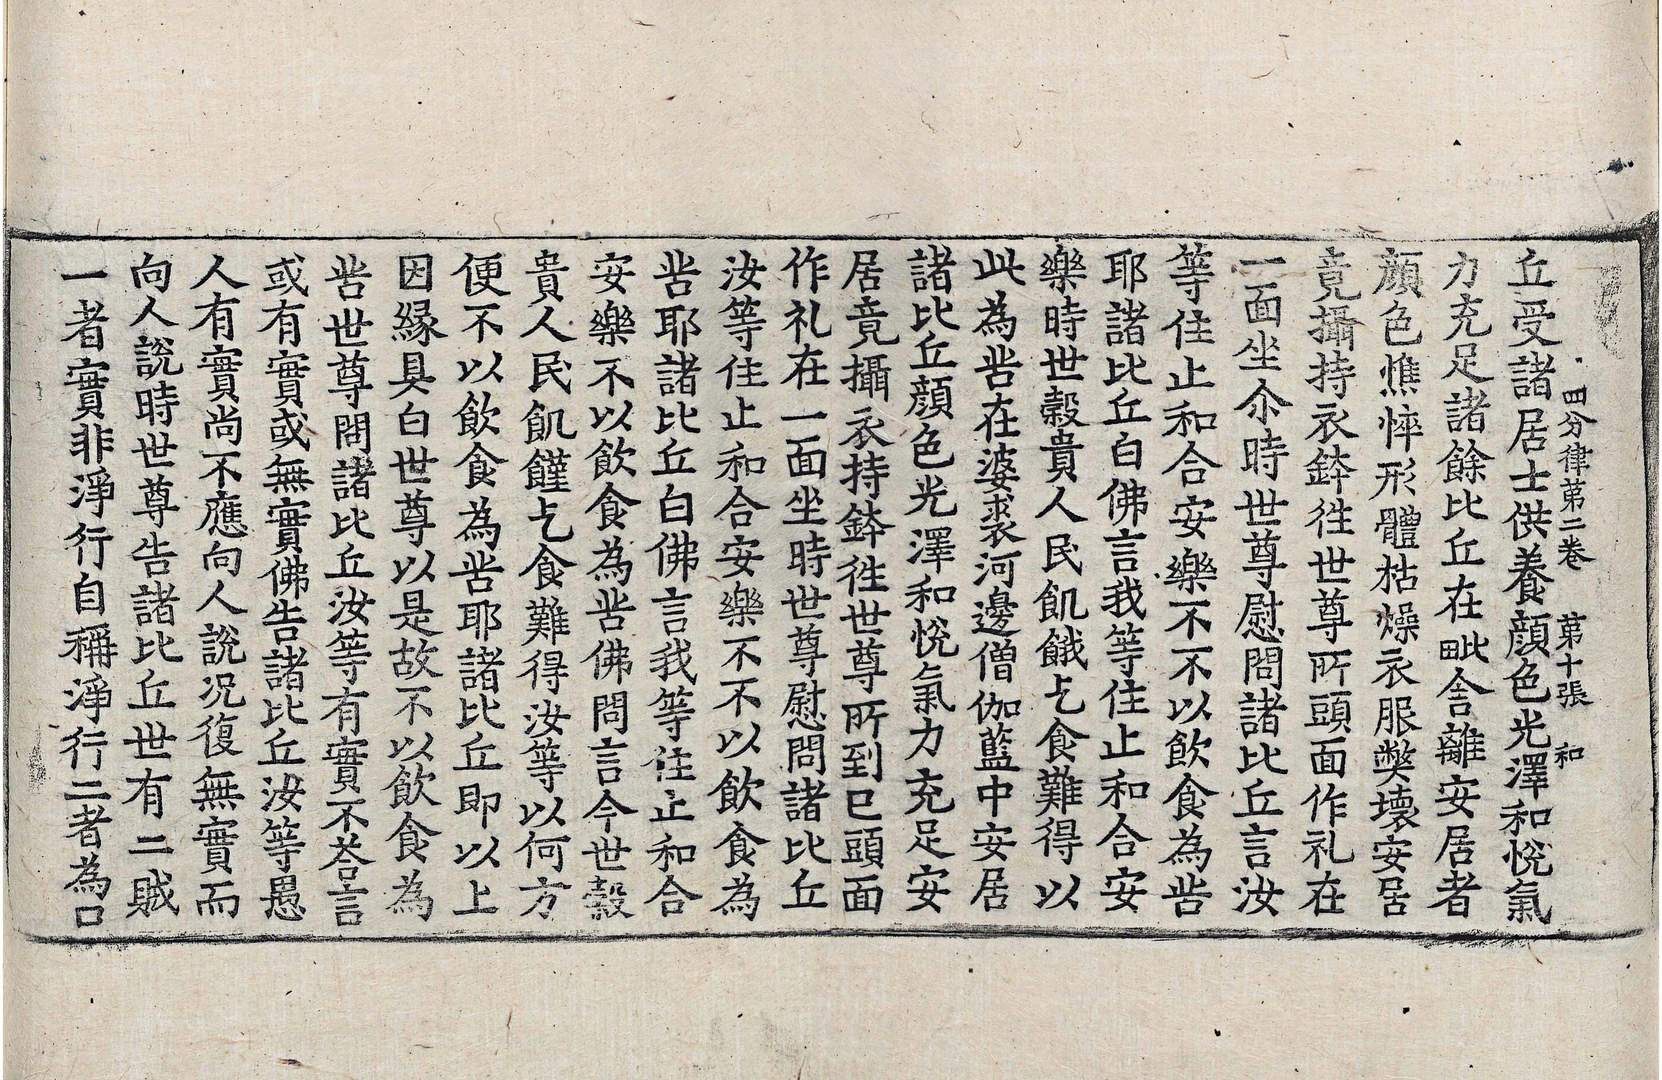 四分律第二卷　第十張　和
丘受諸居士供養顔色光澤和悅氣
力充足諸餘比丘在毗舍離安居者
顔色憔悴形體枯燥衣服獘壞安居
竟攝持衣鉢徃世尊所頭面作礼在
一面坐尒時世尊慰問諸比丘言汝
等住止和合安樂不不以飲食為苦
耶諸比丘白佛言我等住止和合安
樂時世穀貴人民飢餓乞食難得以
此為苦在婆裘河邊僧伽藍中安居
諸比丘顔色光澤和悅氣力充足安
居竟攝衣持鉢徃世尊所到已頭面
作礼在一面坐時世尊慰問諸比丘
汝等住止和合安樂不不以飲食為
苦耶諸比丘白佛言我等住止和合
安樂不以飲食為苦佛問言今世穀
貴人民飢饉乞食難得汝等以何方
便不以飲食為苦耶諸比丘即以上
因緣具白世尊以是故不以飲食為
苦世尊問諸比丘汝等有實不荅言
或有實或無實佛告諸比丘汝等愚
人有實尚不應向人說况復無實而
向人說時世尊告諸比丘世有二賊
一者實非淨行自稱淨行二者為口